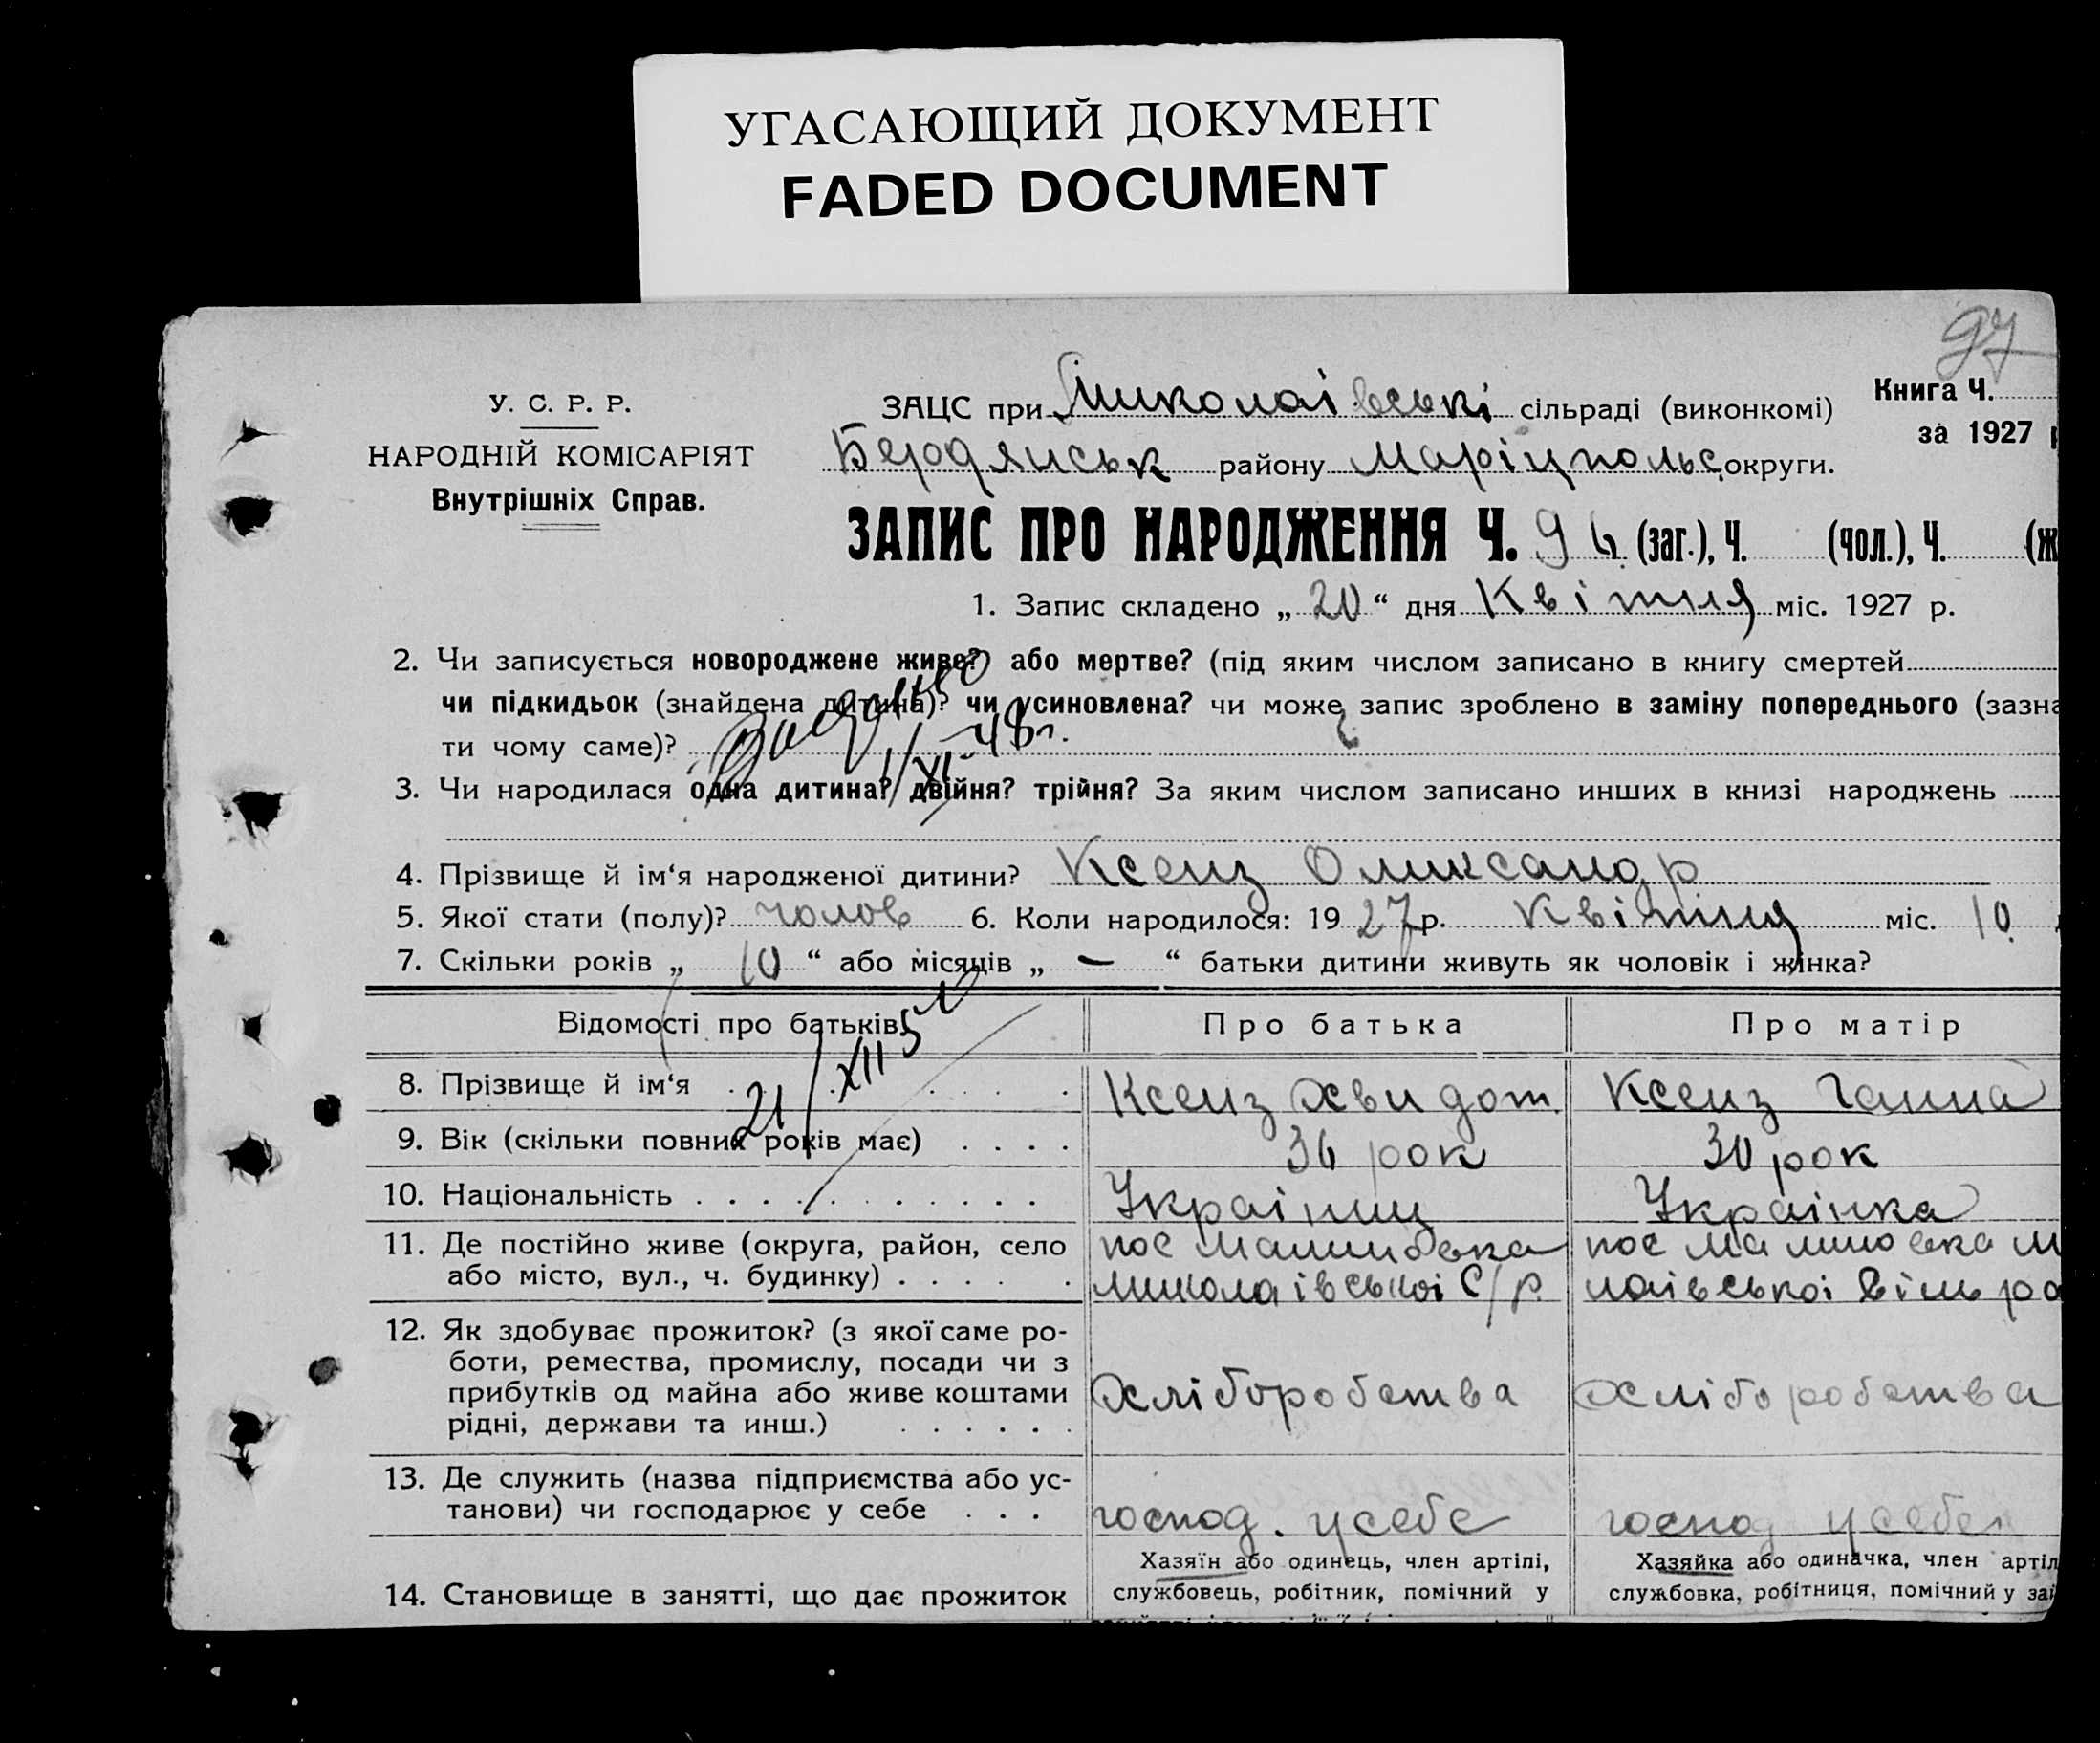 УГАСАЮЩИЙ ДОКУМЕНТ
FADED DOCUMENT
97
У. С. Р. Р.
НАРОДНІЙ КОМІСАРІЯТ
Внутрішніх Справ.
ЗАЦС при Миколаівські сільраді (виконкомі)
Книга Ч.
за 1927 р
Бердянськ району Маріупольс округи.
ЗАПИС ПРО НАРОДЖЕННЯ Ч. 96 (заг.), Ч. (чол.), Ч. (ж
1. Запис складено „ 20 “ дня Квітня міс. 1927 р.
2. Чи записується новороджене живе? або мертве? (під яким числом записано в книгу смертей
чи підкидьок (знайдена дитина)? чи усиновлена? чи може запис зроблено в заміну попереднього (зазна
ти чому саме)?
Видано
1/XI-48г.
3. Чи народилася одна дитина? двійня? трійня? За яким числом записано инших в книзі народжень
4. Прізвище й ім‘я народженої дитини? Ксенз Оликсандр
5. Якої стати (полу)? чолов 6. Коли народилося: 19 27 р. Квітня міс. 10
7. Скільки років „ 10 “ або місяців „ — “ батьки дитини живуть як чоловік і жінка?
Відомості про батьків Про батька Про матір
21/XII 50
8. Прізвище й ім‘я Ксенз Хвидот. Ксенз Ганна
9. Вік (скільки повних років має) 36 рок 30 рок
10. Національність Украінец Украінка
11. Де постійно живе (округа, район, село пос Малиновка пос Малиновка М
або місто, вул., ч. будинку) Миколаівськоі С/р. лаівськоі Сіль ра
12. Як здобуває прожиток? (з якої саме ро-
боти, ремества, промислу, посади чи з
прибутків од майна або живе коштами Хліборобства Хліборобства
рідні, держави та инш.)
13. Де служить (назва підприємства або ус-
танови) чи господарює у себе господ. усебе господ усебе
Хазяїн або одинець, член артілі, Хазяйка або одиначка, член артіл
14. Становище в занятті, що дає прожиток службовець, робітник, помічний у службовка, робітниця, помічний у зай